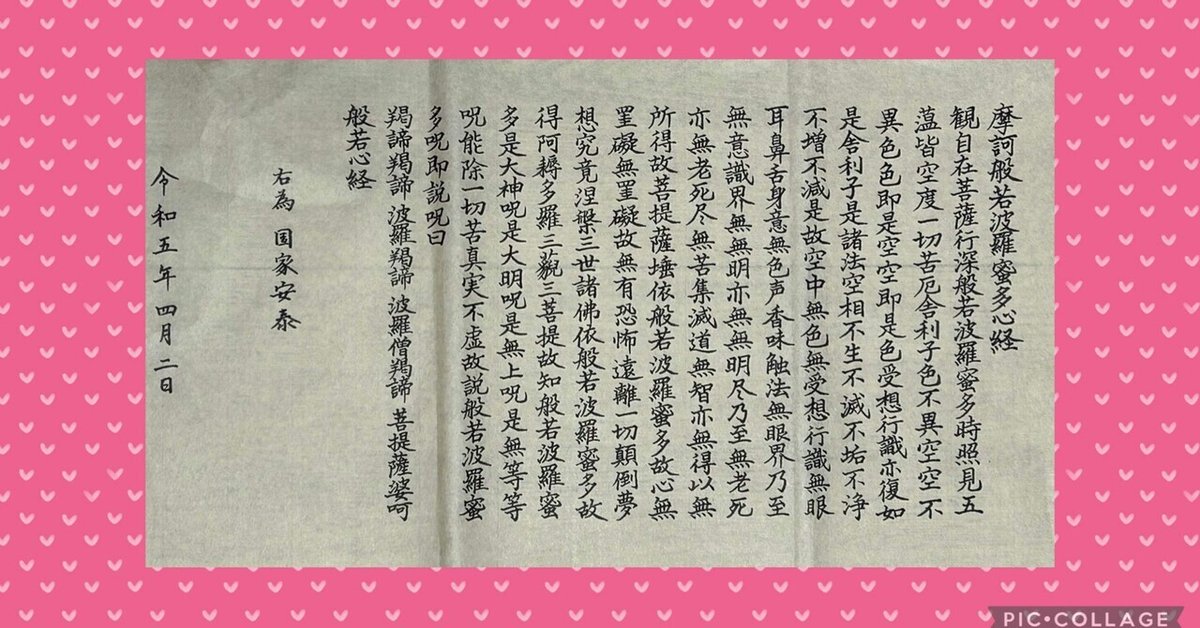 摩訶般若波羅蜜多心経
観自在菩薩行深般若波羅蜜多時照見五
薀皆空度一切苦厄舎利子色不異空空不
異色色即是空空即是色受想行識亦復如
是舎利子是諸法空相不生不滅不垢不浄
不増不減是故空中無色無受想行識無眼
耳鼻舌身意無色声香味触法無眼界乃至
無意識界無無明亦無無明尽乃至無老死
亦無老死尽無苦集滅道無智亦無得以無
所得故菩提薩埵依般若波羅蜜多故心無
罣礙無罣礙故無有恐怖遠離一切顛倒夢
想究竟涅槃三世諸佛依般若波羅蜜多故
得阿耨多羅三藐三菩提故知般若波羅蜜
多是大神呪是大明呪是無上呪是無等等
呪能除一切苦真実不虚故説般若波羅蜜
多呪即説呪曰
羯諦羯諦 波羅羯諦 波羅僧羯諦 菩提薩婆呵
般若心経
右為 国家安泰
令和五年四月二日
PIC•COLLAGE